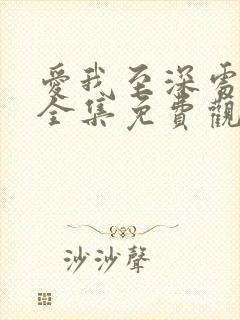 愛我至深電
全集免費觀
沙沙聲